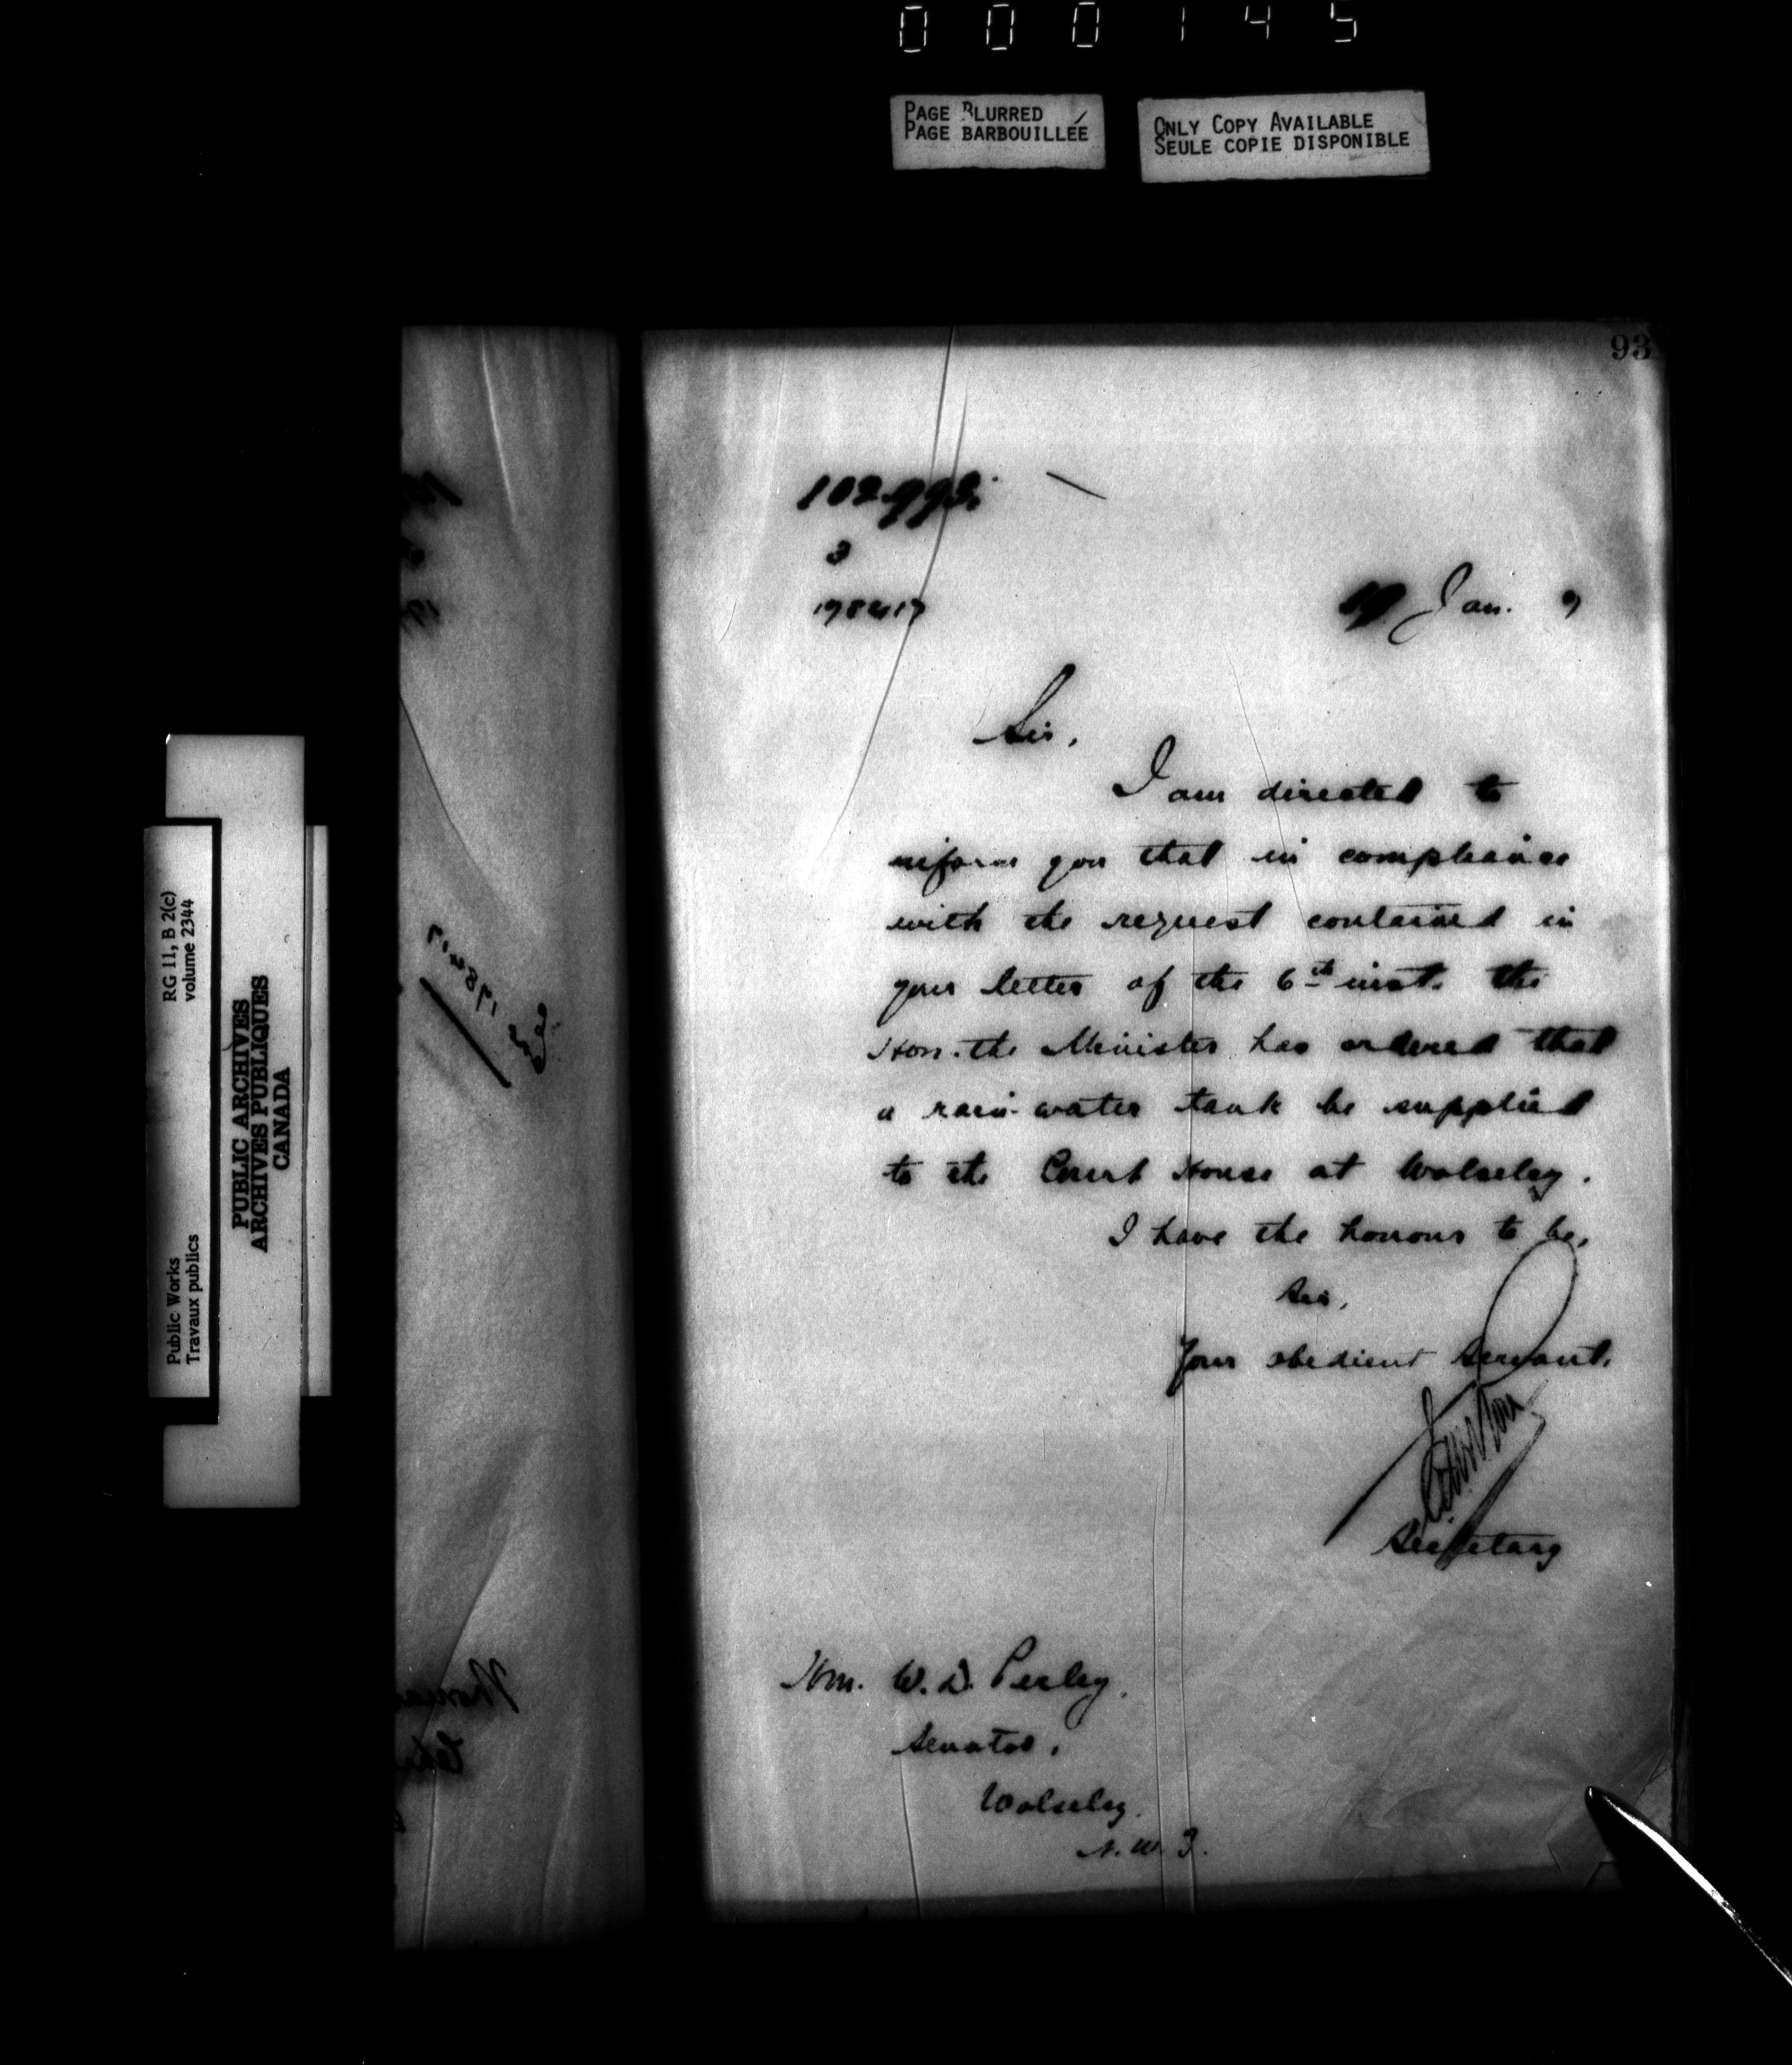 000145
PAGE BLURRED
PAGE BARBOUILLÉE
ONLY COPY AVAILABLE
SEULE COPIE DISPONIBLE
93
3
Jan. 7
Sir,
I am directed to
inform you that in compliance
with the request contained in
your letter of the 6th inst. the
Hon. the Minister has ordered that
a rain-water tank be supplied
to the Court House at Wolseley.
I have the honour to be,
Sir,
Your obedient Servant.
Secretary
Hon. W. D. Perley,
Senator,
Wolseley.
N. W. T.
RG 11, B 2(c)
volume 2344
Public Works
Travaux publics
PUBLIC ARCHIVES
ARCHIVES PUBLIQUES
CANADA